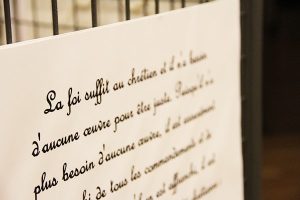 La foi suffit au chrétien et il n'a besoin
d'aucune œuvre pour être juste. Puisqu'il n'a
plus besoin d'aucune œuvre, il est assurément
de tous les commandements et de
est affranchi, il est